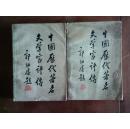 中国历代著名
文学家评传
郭绍虞题
中国历代著名
文学家评传
郭绍虞题